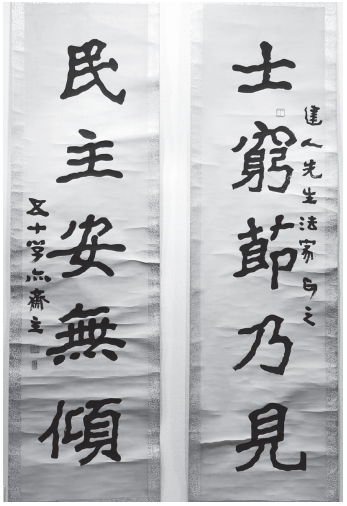 建人先生法家正之
士窮節乃見
民主安無傾
五十學亦齋主